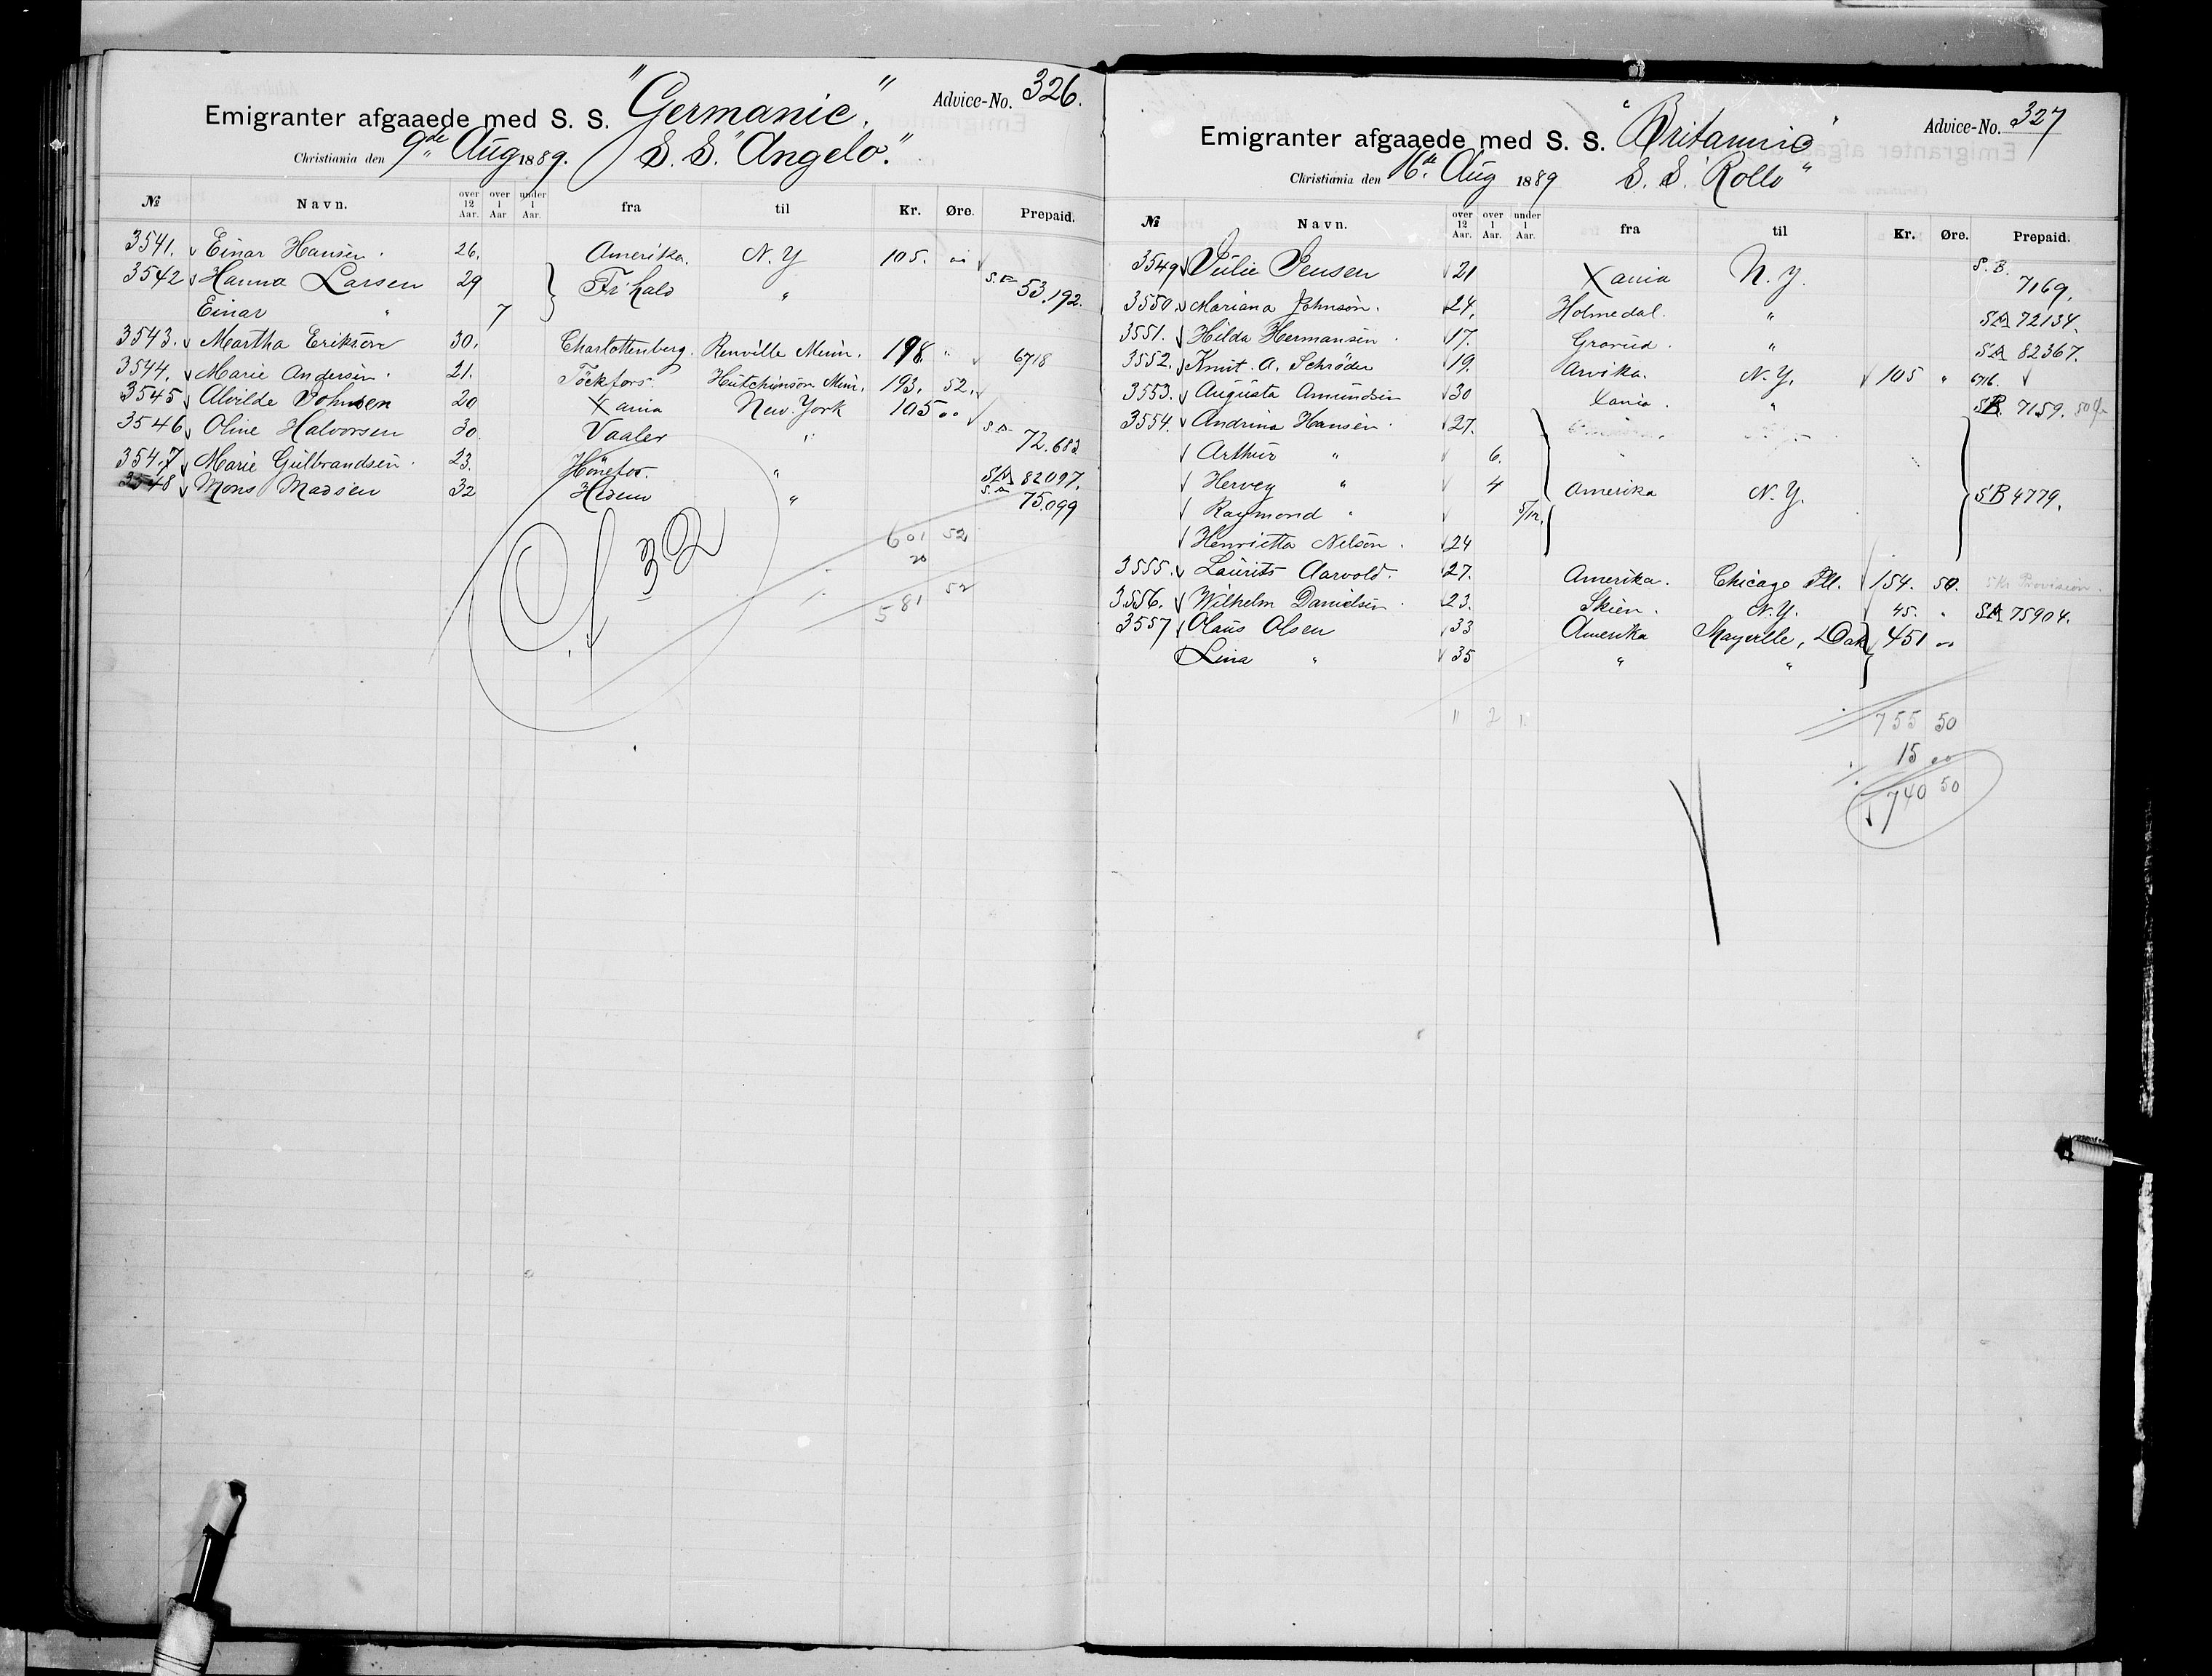 Emigranter afgaaede med S. S. "Germanic". Advice-No. 326.
Christiania den 9de Aug 1889. S. S. "Angelo".
№ Navn. over 12 Aar. over 1 Aar under 1 Aar. fra til Kr. Øre. Prepaid.
3541. Einar Hansen. 26. Amerika. N. Y 105. "
3542 Hanna Larsen 29 Fr'hald " 53.192.
Einar " 7
3543. Martha Erikson 30. Charlottenberg. Renville Minn. 198 " 6718
3544. Marie Andersen. 21. Töckfors. Hutchinson Minn. 193. 52.
3545 Alvilde Johnsen 20 Xania New. York 105 "
3546 Oline Halvorsen 30. Vaaler " 72.683
3547 Marie Gulbrandsen. 23. Hönefos. " SA 82097.
3548 Mons Madsen 32 " 75.099
601 52
20
581 52
32
Emigranter afgaaede med S. S. "Britannic" Advice-No. 327
Christiania den 16de Aug 1889 S. S. "Rollo"
№ Navn. over 12 Aar. over 1 Aar. under 1 Aar. fra til Kr. Øre. Prepaid.
3549 Julie Jensen 21 Xania N. Y. S. B. 7169.
3550. Mariana Johnson. 24. Holmedal. " SA 72134.
3551. Hilda Hermansen. 17. Grorud. " SA 82367.
3552. Knut. A. Schrøder 19. Arvika. N. Y. 105 " 6716.
3553. Augusta Amundsen 30 Xania. " SB. 7159.
3554. Andrina Hansen. 27.
Arthur " 6.
Hervey " 4 Amerika N. Y. SB 4779.
Raymond " 5/12.
Henrietta Nelson. 24
3555. Laurits Aarvold. 27. Amerika. Chicago Ill. 154. 50. 5 Kr Provision.
3556. Wilhelm Danielsen. 23. Skien. N. Y. 45. " SA 75904.
3557 Olaus Olsen 33 Amerika Mayville, Dak 451 "
Lina " 35 " "
11 2 1. 755 50
15 00
740 50